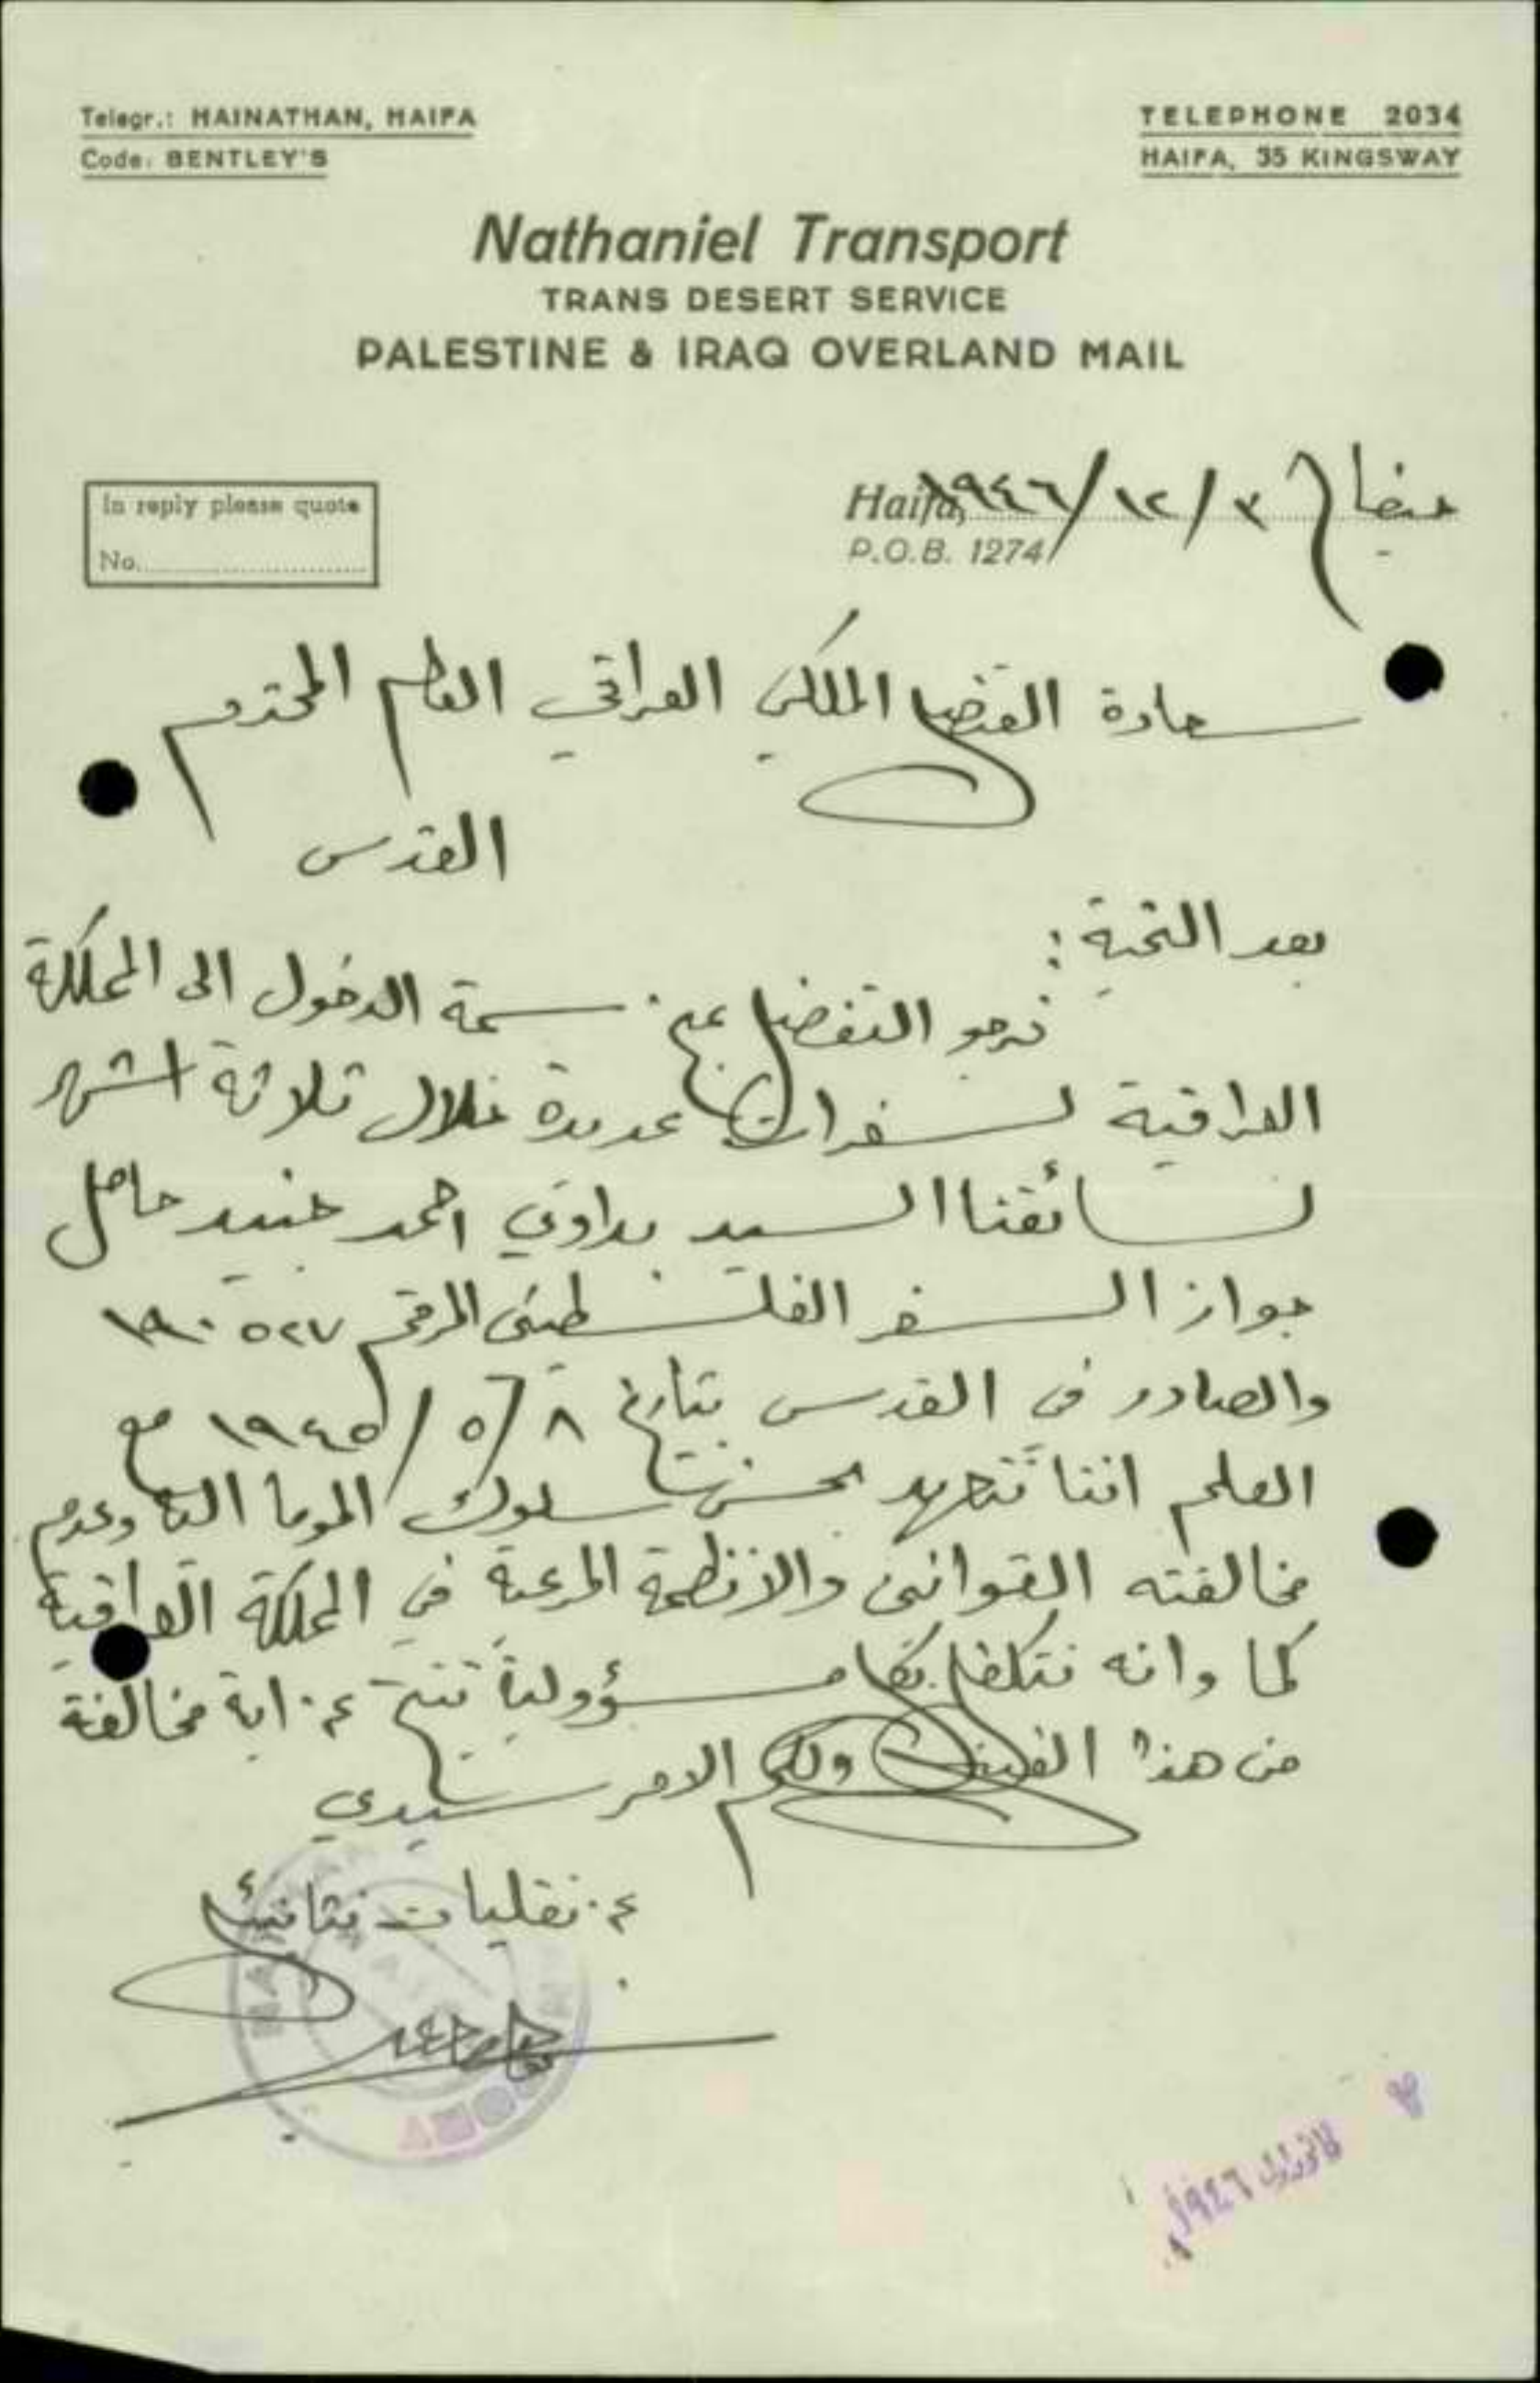 Telegr.: HAINATHAN, HAIFA
Code: BENTLEY'S
TELEPHONE 2034
HAIFA, 35 KINGSWAY
Nathaniel Transport
TRANS DESERT SERVICE
PALESTINE & IRAQ OVERLAND MAIL
In reply please quote
No.
Haifa,
P.O.B. 1274
حيفا في ٣/١٢/١٩٤٦
سعادة القنصل الملكي العراقي العام المحترم
القدس
بعد التحية:
نرجو التفضل بمنح سمة الدخول الى المملكة
العراقية لسفرات عديدة خلال ثلاثة اشهر
لسائقنا السيد بداوي احمد جنيد حامل
جواز السفر الفلسطيني المرقم ١٩٠٥٢٧
والصادر في القدس بتاريخ ٨/٥/١٩٤٥ مع
العلم اننا نتعهد بحسن سلوك الموما اليه وعدم
مخالفته القوانين والانظمة المرعية في المملكة العراقية
كما وانه نتكفل بكل مسؤولية تنتج عن اية مخالفة
من هذا القبيل ولكم الامر سيدي
عن نقليات نتانيئل
١٩٤٦